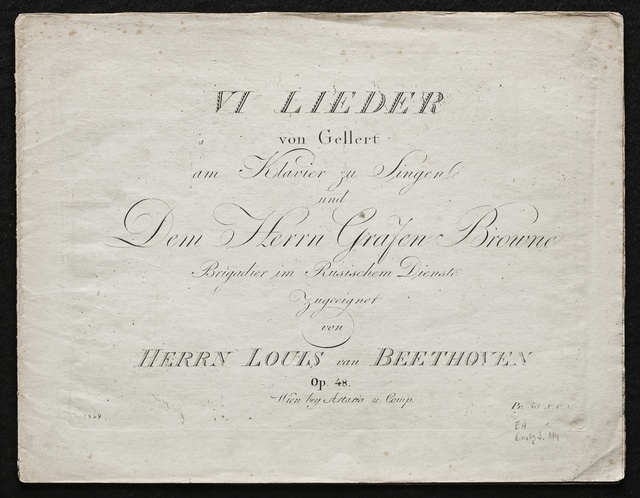 VI LIEDER
von Gellert
am Klavier zu Singen
und
Dem Herrn Grafen Browne
Brigadier im Rusischem Dienste
Zugeeignet
von
HERRN LOUIS van BEETHOVEN
Op. 48.
Wien bey Artaria u Comp.